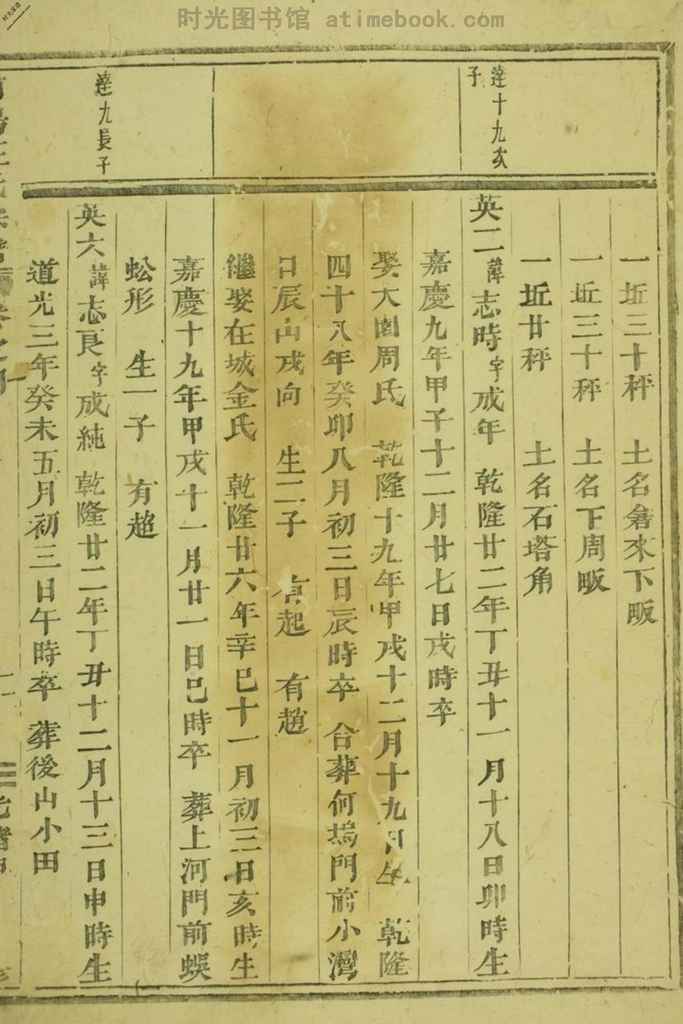 时光图书馆 atimebook.com
達十九次
子
達九長子
一坵三十秤 土名 來下畈
一坵三十秤 土名下周畈
一坵廿秤 土名石塔角
英二諱志時字成年 乾隆廿二年丁丑十一月十八日卯時生
嘉慶九年甲子十二月廿七日戌時卒
娶大園周氏 乾隆十九年甲戌十二月十九日 乾隆
四十八年癸卯八月初三日辰時卒 合葬何塢門前小灣
日辰山戌向 生二子 有起 有趙
繼娶在城金氏 乾隆廿六年辛巳十一月初三日亥時生
嘉慶十九年甲戌十一月廿一日巳時卒 葬上河門前蜈
蚣形 生一子 有超
英六諱志良字成純 乾隆廿二年丁丑十二月十三日申時生
道光三年癸未五月初三日午時卒 葬後山小田